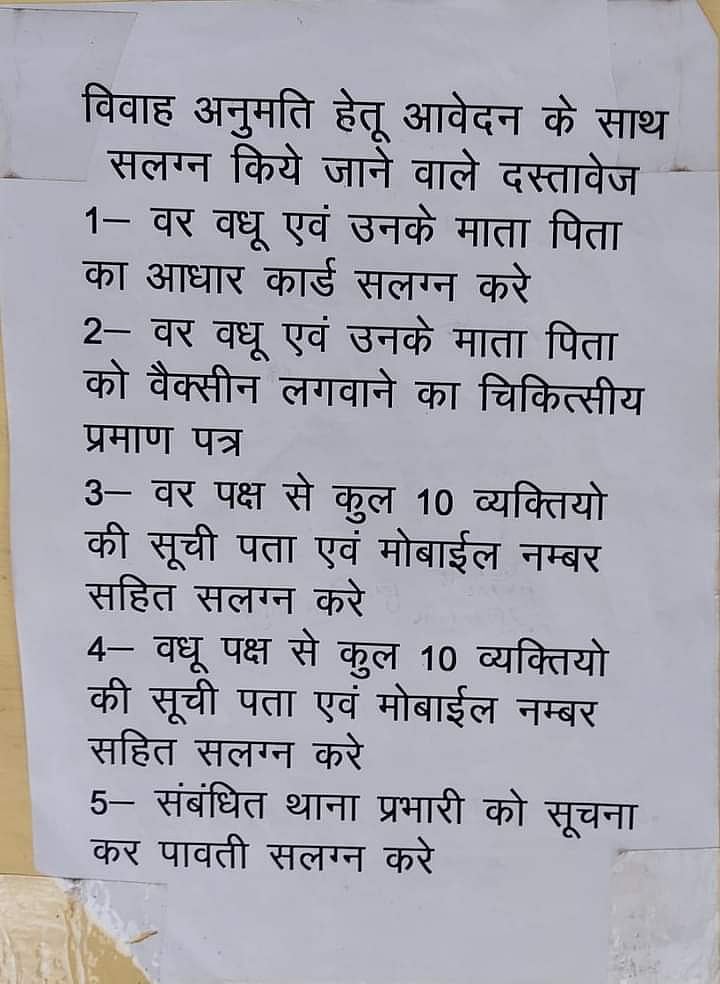 विवाह अनुमति हेतू आवेदन के साथ
सलग्न किये जाने वाले दस्तावेज
1– वर वधू एवं उनके माता पिता
का आधार कार्ड सलग्न करे
2– वर वधू एवं उनके माता पिता
को वैक्सीन लगवाने का चिकित्सीय
प्रमाण पत्र
3– वर पक्ष से कुल 10 व्यक्तियो
की सूची पता एवं मोबाईल नम्बर
सहित सलग्न करे
4– वधू पक्ष से कुल 10 व्यक्तियो
की सूची पता एवं मोबाईल नम्बर
सहित सलग्न करे
5– संबंधित थाना प्रभारी को सूचना
कर पावती सलग्न करे